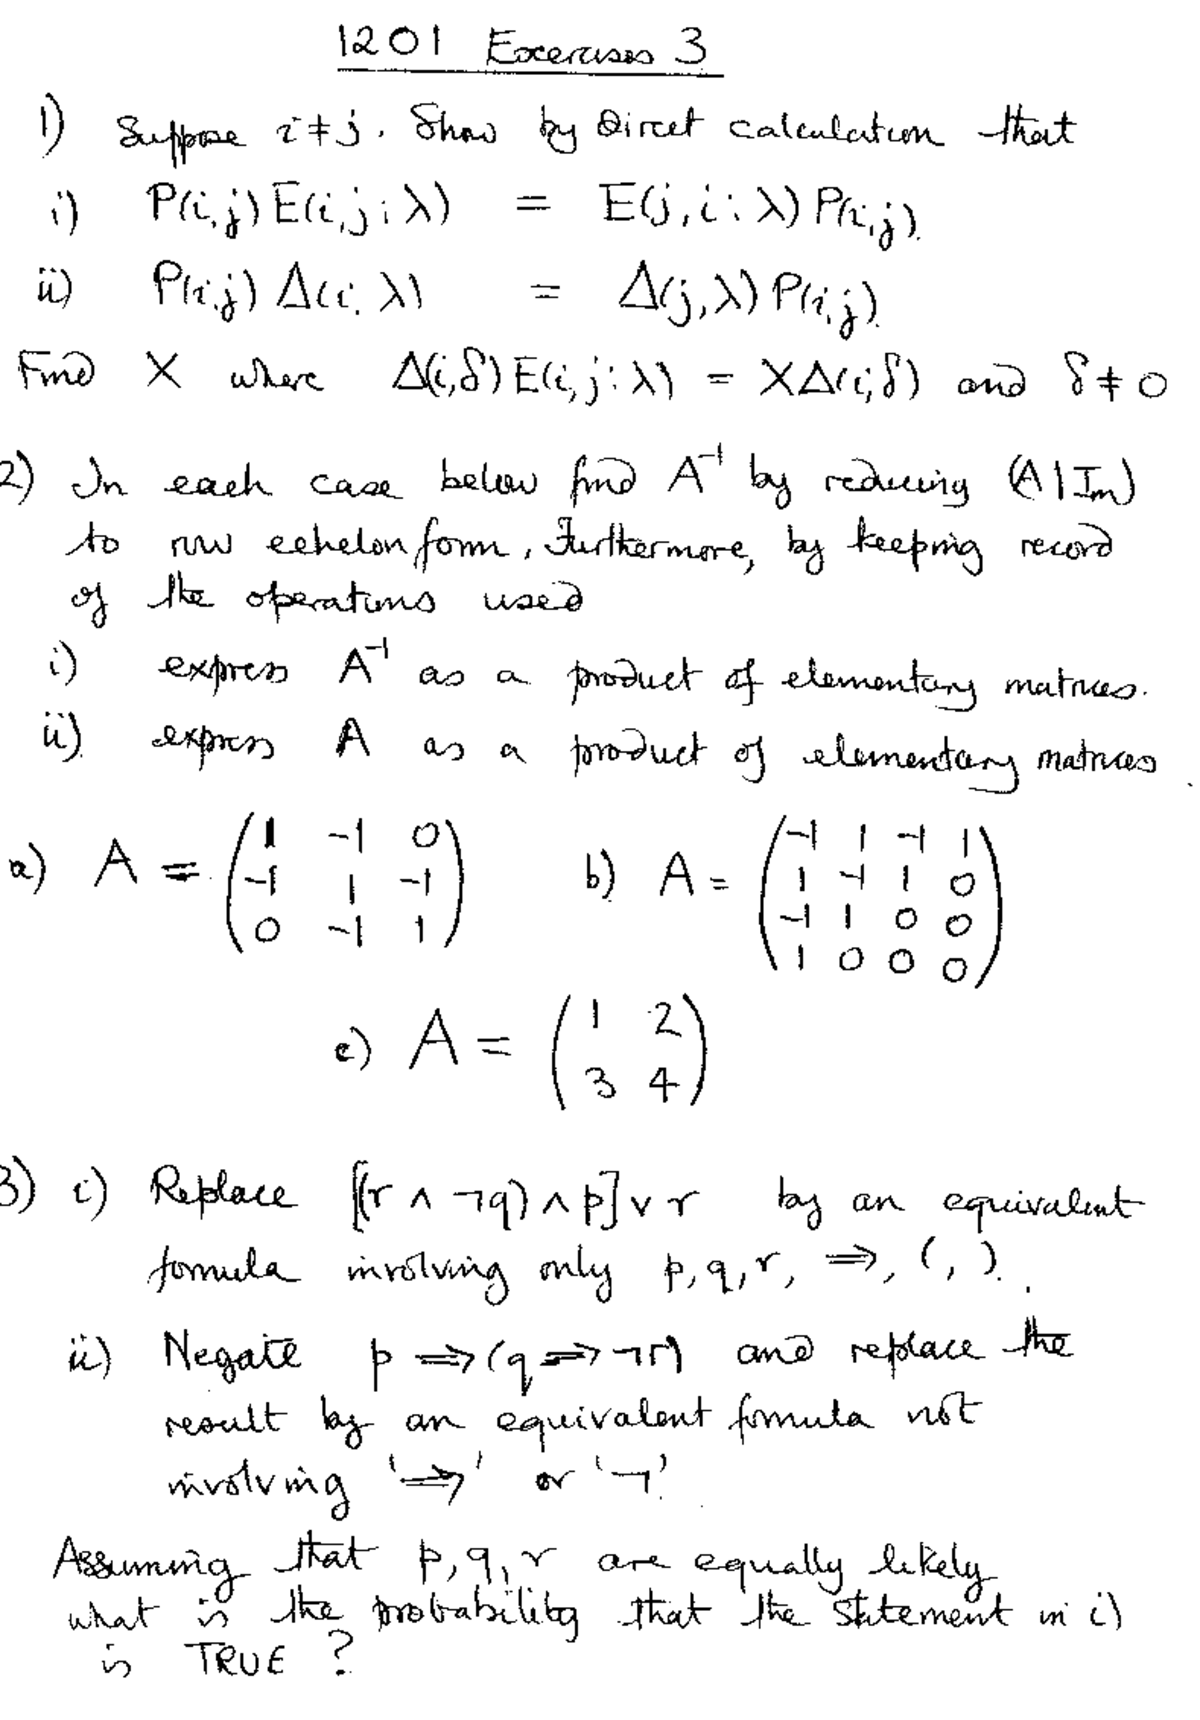 1201 Exercises 3
1) Suppose i ≠ j. Show by direct calculation that
i) P(i,j) E(i,j:λ) = E(j,i:λ) P(i,j).
ii) P(i,j) Δ(i,λ) = Δ(j,λ) P(i,j).
Find X where Δ(i,δ) E(i,j:λ) = XΔ(i,δ) and δ ≠ 0
2) In each case below find A⁻¹ by reducing (A | Im)
to row echelon form, Furthermore, by keeping record
of the operations used
i) express A⁻¹ as a product of elementary matrices.
ii) express A as a product of elementary matrices.
a) A = ( 1 -1 0 ; -1 1 -1 ; 0 -1 1 ) b) A = ( -1 1 -1 1 ; 1 -1 1 0 ; -1 1 0 0 ; 1 0 0 0 )
c) A = ( 1 2 ; 3 4 )
3) i) Replace [(r ∧ ¬q) ∧ p] ∨ r by an equivalent
formula involving only p, q, r, ⇒, (, ).
ii) Negate p ⇒ (q ⇒ ¬r) and replace the
result by an equivalent formula not
involving '⇒' or '¬'.
Assuming that p, q, r are equally likely
what is the probability that the statement in i)
is TRUE ?